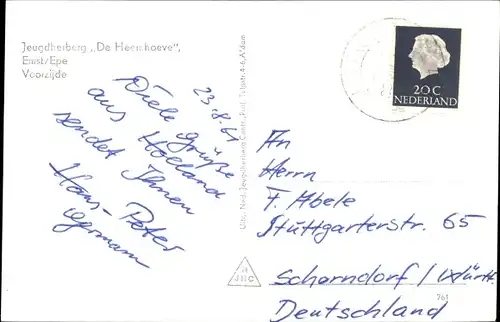 Jeugdherberg „De Heemhoeve”,
Emst/Epe
Voorzijde
23.8.61
Viele Grüße
aus Holland
sendet Ihnen
Hans-Peter
Uitg. Ned. Jeugdherberg Centrale, Prof. Tulpstr. 4-6, A'dam
20 C
NEDERLAND
An
Herrn
F. Abele
Stuttgarterstr. 65
Schorndorf/Württ.
Deutschland
761